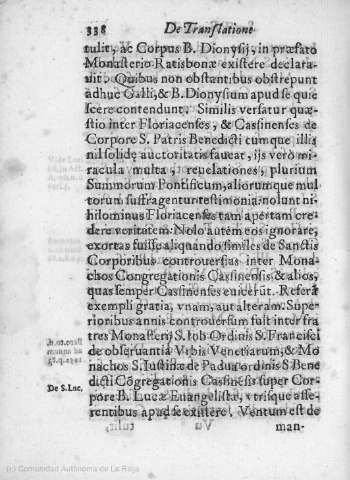 338 De Translatione
tulit, ac Corpus B. Dionysij, in præfato
Monasterio Ratisbonæ existere declara
uit. Quibus non obstantibus obstrepunt
adhuc Galli, & B. Dionysium apud se quie
scere contendunt. Similis versatur quæ-
stio inter Floriacenses, & Cassinenses de
Corpore S. Patris Benedicti cumque illis
nil solidę auctoritatis faueat, ijs verò mi-
racula multa, reuelationes, plurium
Summorum Pontificum, aliorumque mul
torum suffragentur testimonia: nolunt ni-
hilominus Floriacenses tam apertam cre-
dere veritatem. Nolo autem eos ignorare,
exortas fuisse aliquando similes de Sanctis
Corporibus controuersias inter Mona-
chos Congregationis Cassinensis, & alios,
quas semper Cassinenses euicerūt. Referā
exempli gratia, vnam, aut alteram. Supe-
rioribus annis controuersum fuit inter fra
tres Monasterij S. Iob Ordinis S. Francisci
de obseruantia Vrbis Venetiarum, & Mo
nachos S. Iustinæ de Padua ordinis S. Bene
De S. Luc. dicti Cōgregationis Cassinesis super Cor-
pore B. Lucæ Euangelistæ, vtrisque asse-
rentibus apud se existere. Ventum est de
man-
(c) Comunidad Autónoma de La Rioja